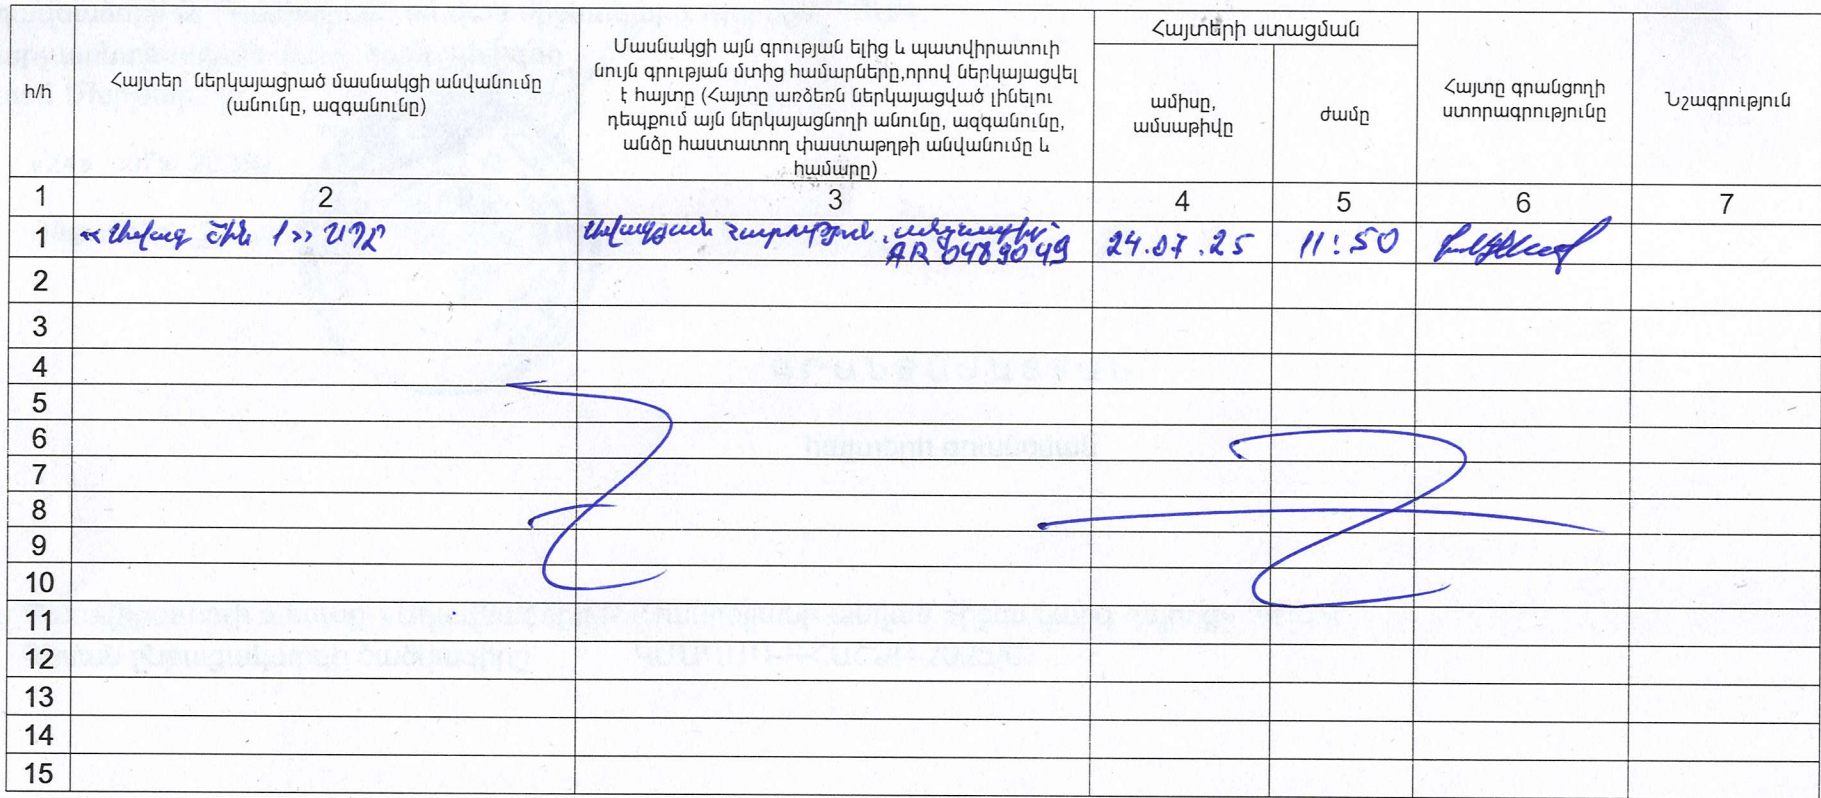 հ/հ
Հայտեր ներկայացրած մասնակցի անվանումը
(անունը, ազգանունը)
Մասնակցի այն գրության ելից և պատվիրատուի
նույն գրության մտից համարները,որով ներկայացվել
է հայտը (Հայտը առձեռն ներկայացված լինելու
դեպքում այն ներկայացնողի անունը, ազգանունը,
անձը հաստատող փաստաթղթի անվանումը և
համարը)
Հայտերի ստացման
ամիսը,
ամսաթիվը
ժամը
Հայտը գրանցողի
ստորագրությունը
Նշագրություն
1 2 3 4 5 6 7
1 «Ավագ Շին 1» ՍՊԸ Ավագյան Հարություն, անձնագիր՝
AR 0489049 24.07.25 11:50
2
3
4
5
6
7
8
9
10
11
12
13
14
15